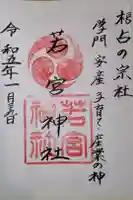 根占の宗社
学問 家産 子育て 産業の神
若宮神社
若宮神社
令和五年一月三日